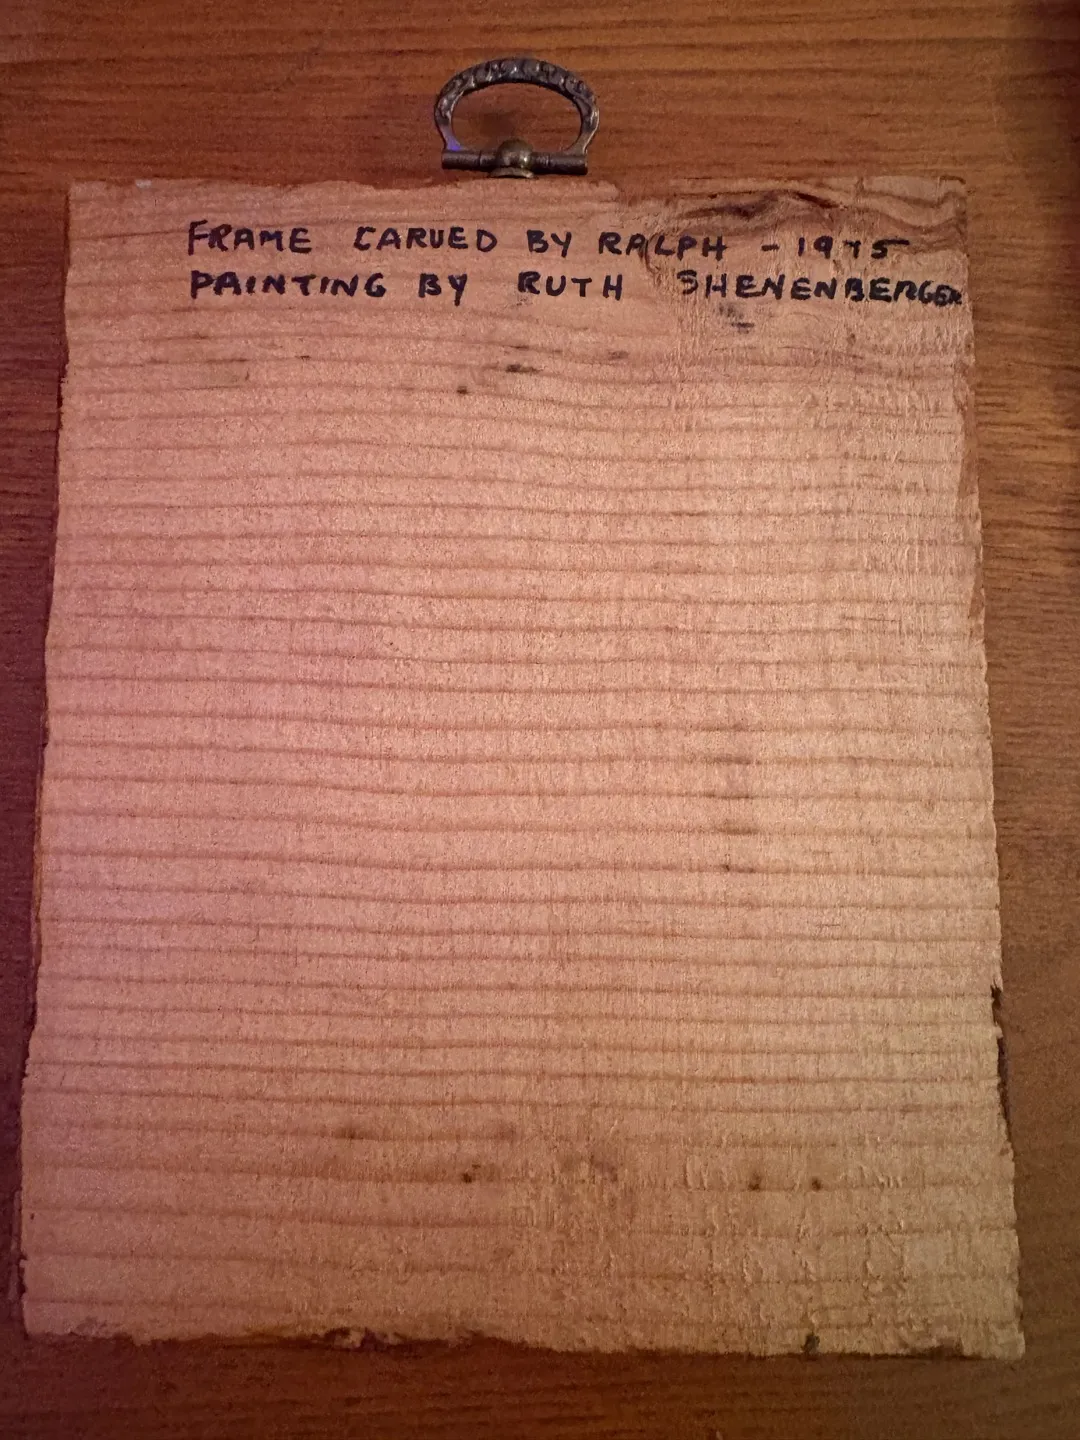 FRAME CARVED BY RALPH - 1975
PAINTING BY RUTH SHENENBERGER